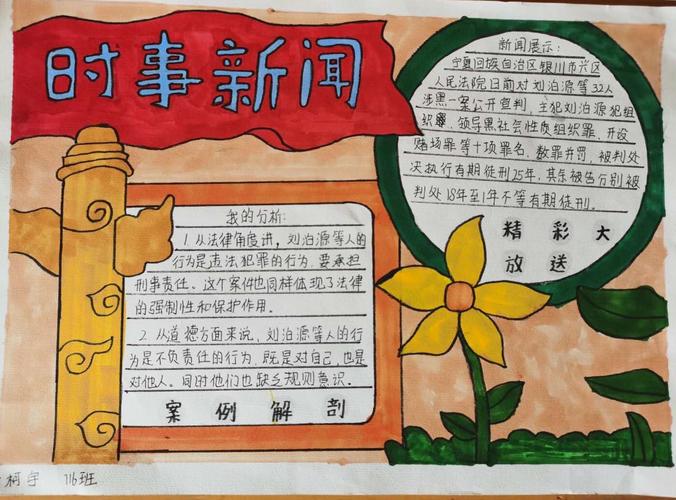 时事新闻
新闻展示:
宁夏回族自治区银川市兴区
人民法院日前对刘泊源等32人
涉黑一案公开宣判,主犯刘泊源犯组
织罪、领导黑社会性质组织罪、开设
赌场罪等十项罪名,数罪并罚,被判处
决执行有期徒刑25年,其余被告分别被
判处18年至1年不等有期徒刑。
精彩大
放送
我的分析:
1.从法律角度讲,刘泊源等人的
行为是违法犯罪的行为,要承担
刑事责任。这个案件也同样体现了法律
的强制性和保护作用。
2.从道德方面来说,刘泊源等人的行
为是不负责任的行为,既是对自己,也是
对他人。同时他们也缺乏规则意识。
案例解剖
柯宇 116班